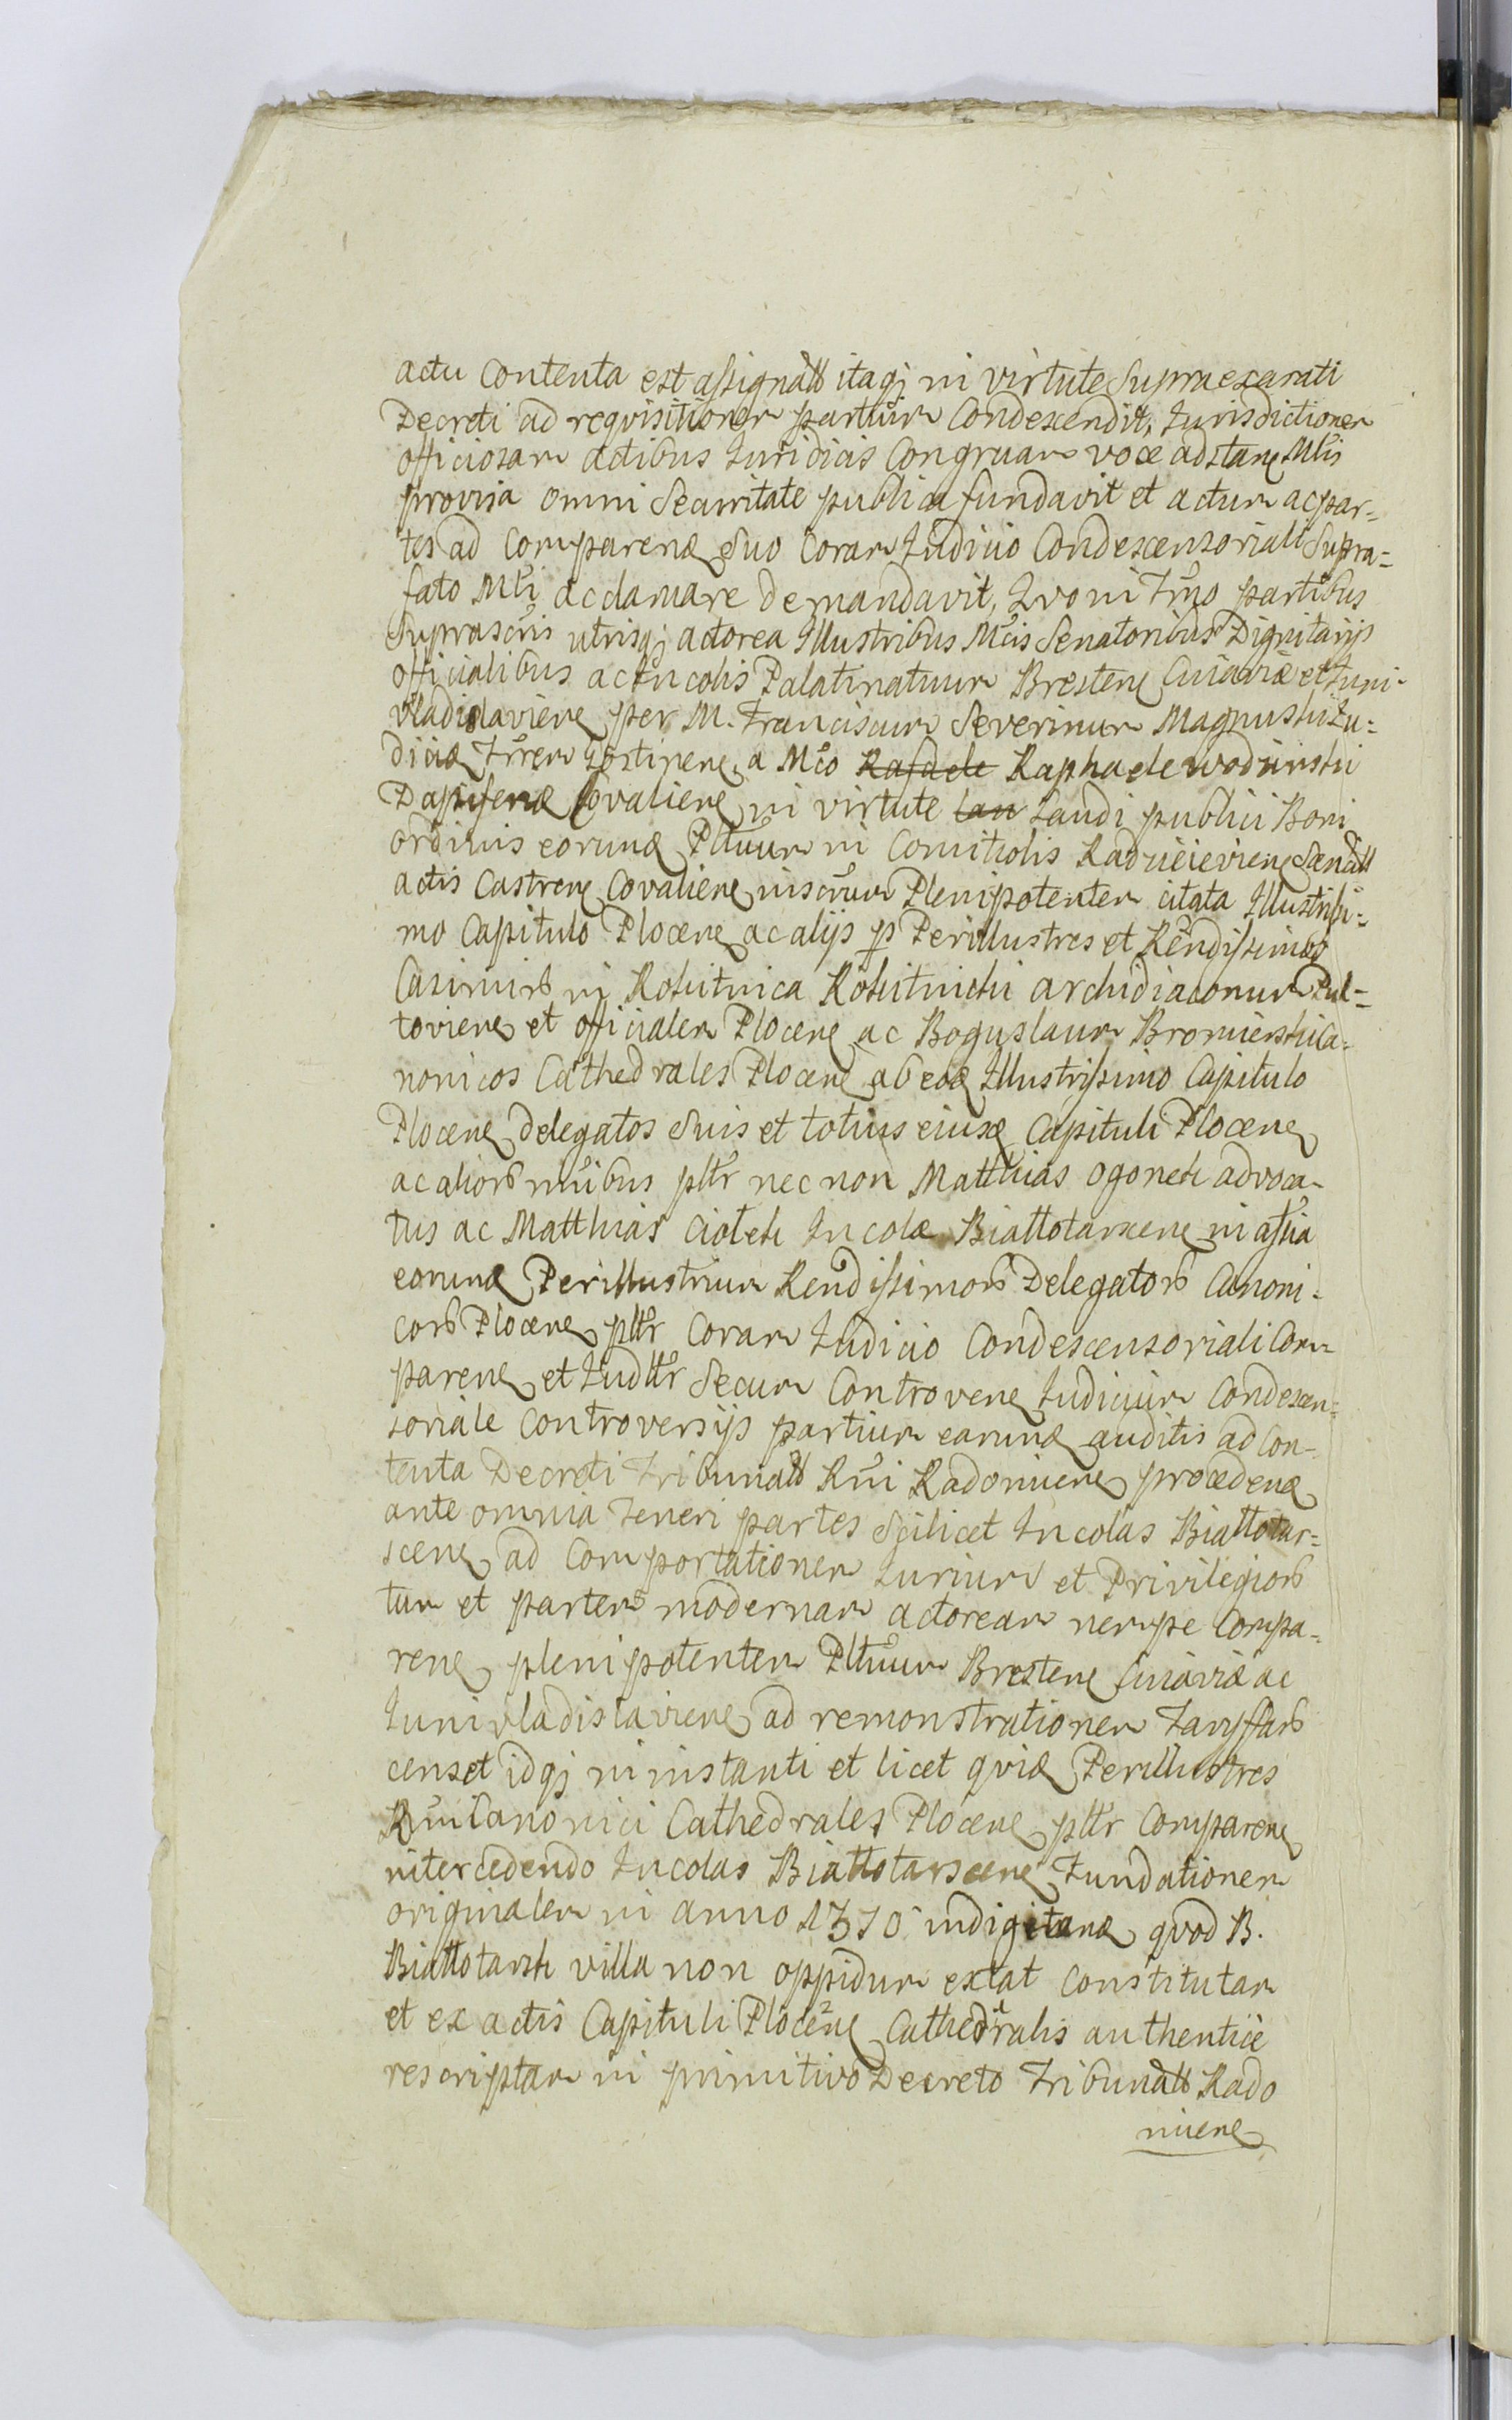 actu Contenta est assignatt itaq; in virtute Supraexarati
Decreti ad reqvisitionem partium Condescendit, Iurisdictionem
officiosam actibus Iuridicis Congruam voce adstanę Mtis
provisa omni Securitate publica fundavit et actum ac par=
tes ad Comparenđ Suo Coram Iudicio Condescensoriali Supra=
fato Mti acclamare demandavit, Qvo in Trno partibus
Suprascris utrisq; actorea Illustribus Mcis Senatoribus Dignitarijs
officialibus ac Incolis Palatinatuum Brestenę Cuiaviæ et Iuni-
vladislavienę per M. Franciscum Severinum Magnuski Iu=
dicæ Trrem Gostinenę a Mco Rafaele Raphaele wodzinski
Dapiferæ Covalienę in virtute lau Laudi publici Boni
ordinis eorunđ Pltuum in Comitiolis Radzieievienę Sanatt
actis Castrenę Covalienę inscrum Plenipotentem citata Illustrissi=
mo Capitulo Plocenę ac alijs p Perillustres et Rendissimos
Casimirum in Rokitnica Rokitnicki archidiaconum Pul=
tovienę et officialem Plocenę ac Boguslaum Bromierski Ca=
nonicos Cathedrales Plocenę ab eođ Illustrissimo Capitulo
Plocenę delegatos Suis et totius eiusđ Capituli Plocenę
ac aliorum nnibus pltr nec non Matthias Ogonek advoca-
tus ac Matthias Ciołek Incolæ Białłotarscenę in assia
eorunđ Perillustrium Rendissimorum Delegatorum Canoni=
corum Plocenę pltr Coram Iudicio Condescensoriali Com
parenę et Iudltr Secum Controvenę Iudicium Condescen=
soriale Controversijs partium earunđ auditis ad Con-
tenta Decreti Tribunatt Rni Radomienę procedenđ
ante omnia teneri partes Scilicet Incolas Białłotar=
scenę ad Comportationem Iurium et Privilegiorum
tum et partem modernam actoream nempe Compa=
renę plenipotentem Pltuum Brestenę Cuiaviæ ac
Iunivladislavienę ad remonstrationem Taryffarum
censet idq; in instanti et licet qviđ Perillustres
Rmi Canonici Cathedrales Plocenę pltr Comparenę
intercedendo Incolas Białłotarscenę Fundationem
originalem in anno 1370 indigitanđ qvod B.
Białłotarsk villa non oppidum extat Constitutam
et ex actis Capituli Plocenę Cathedralis authentice
rescriptam in primitivo Decreto Tribunatt Rado
mienę